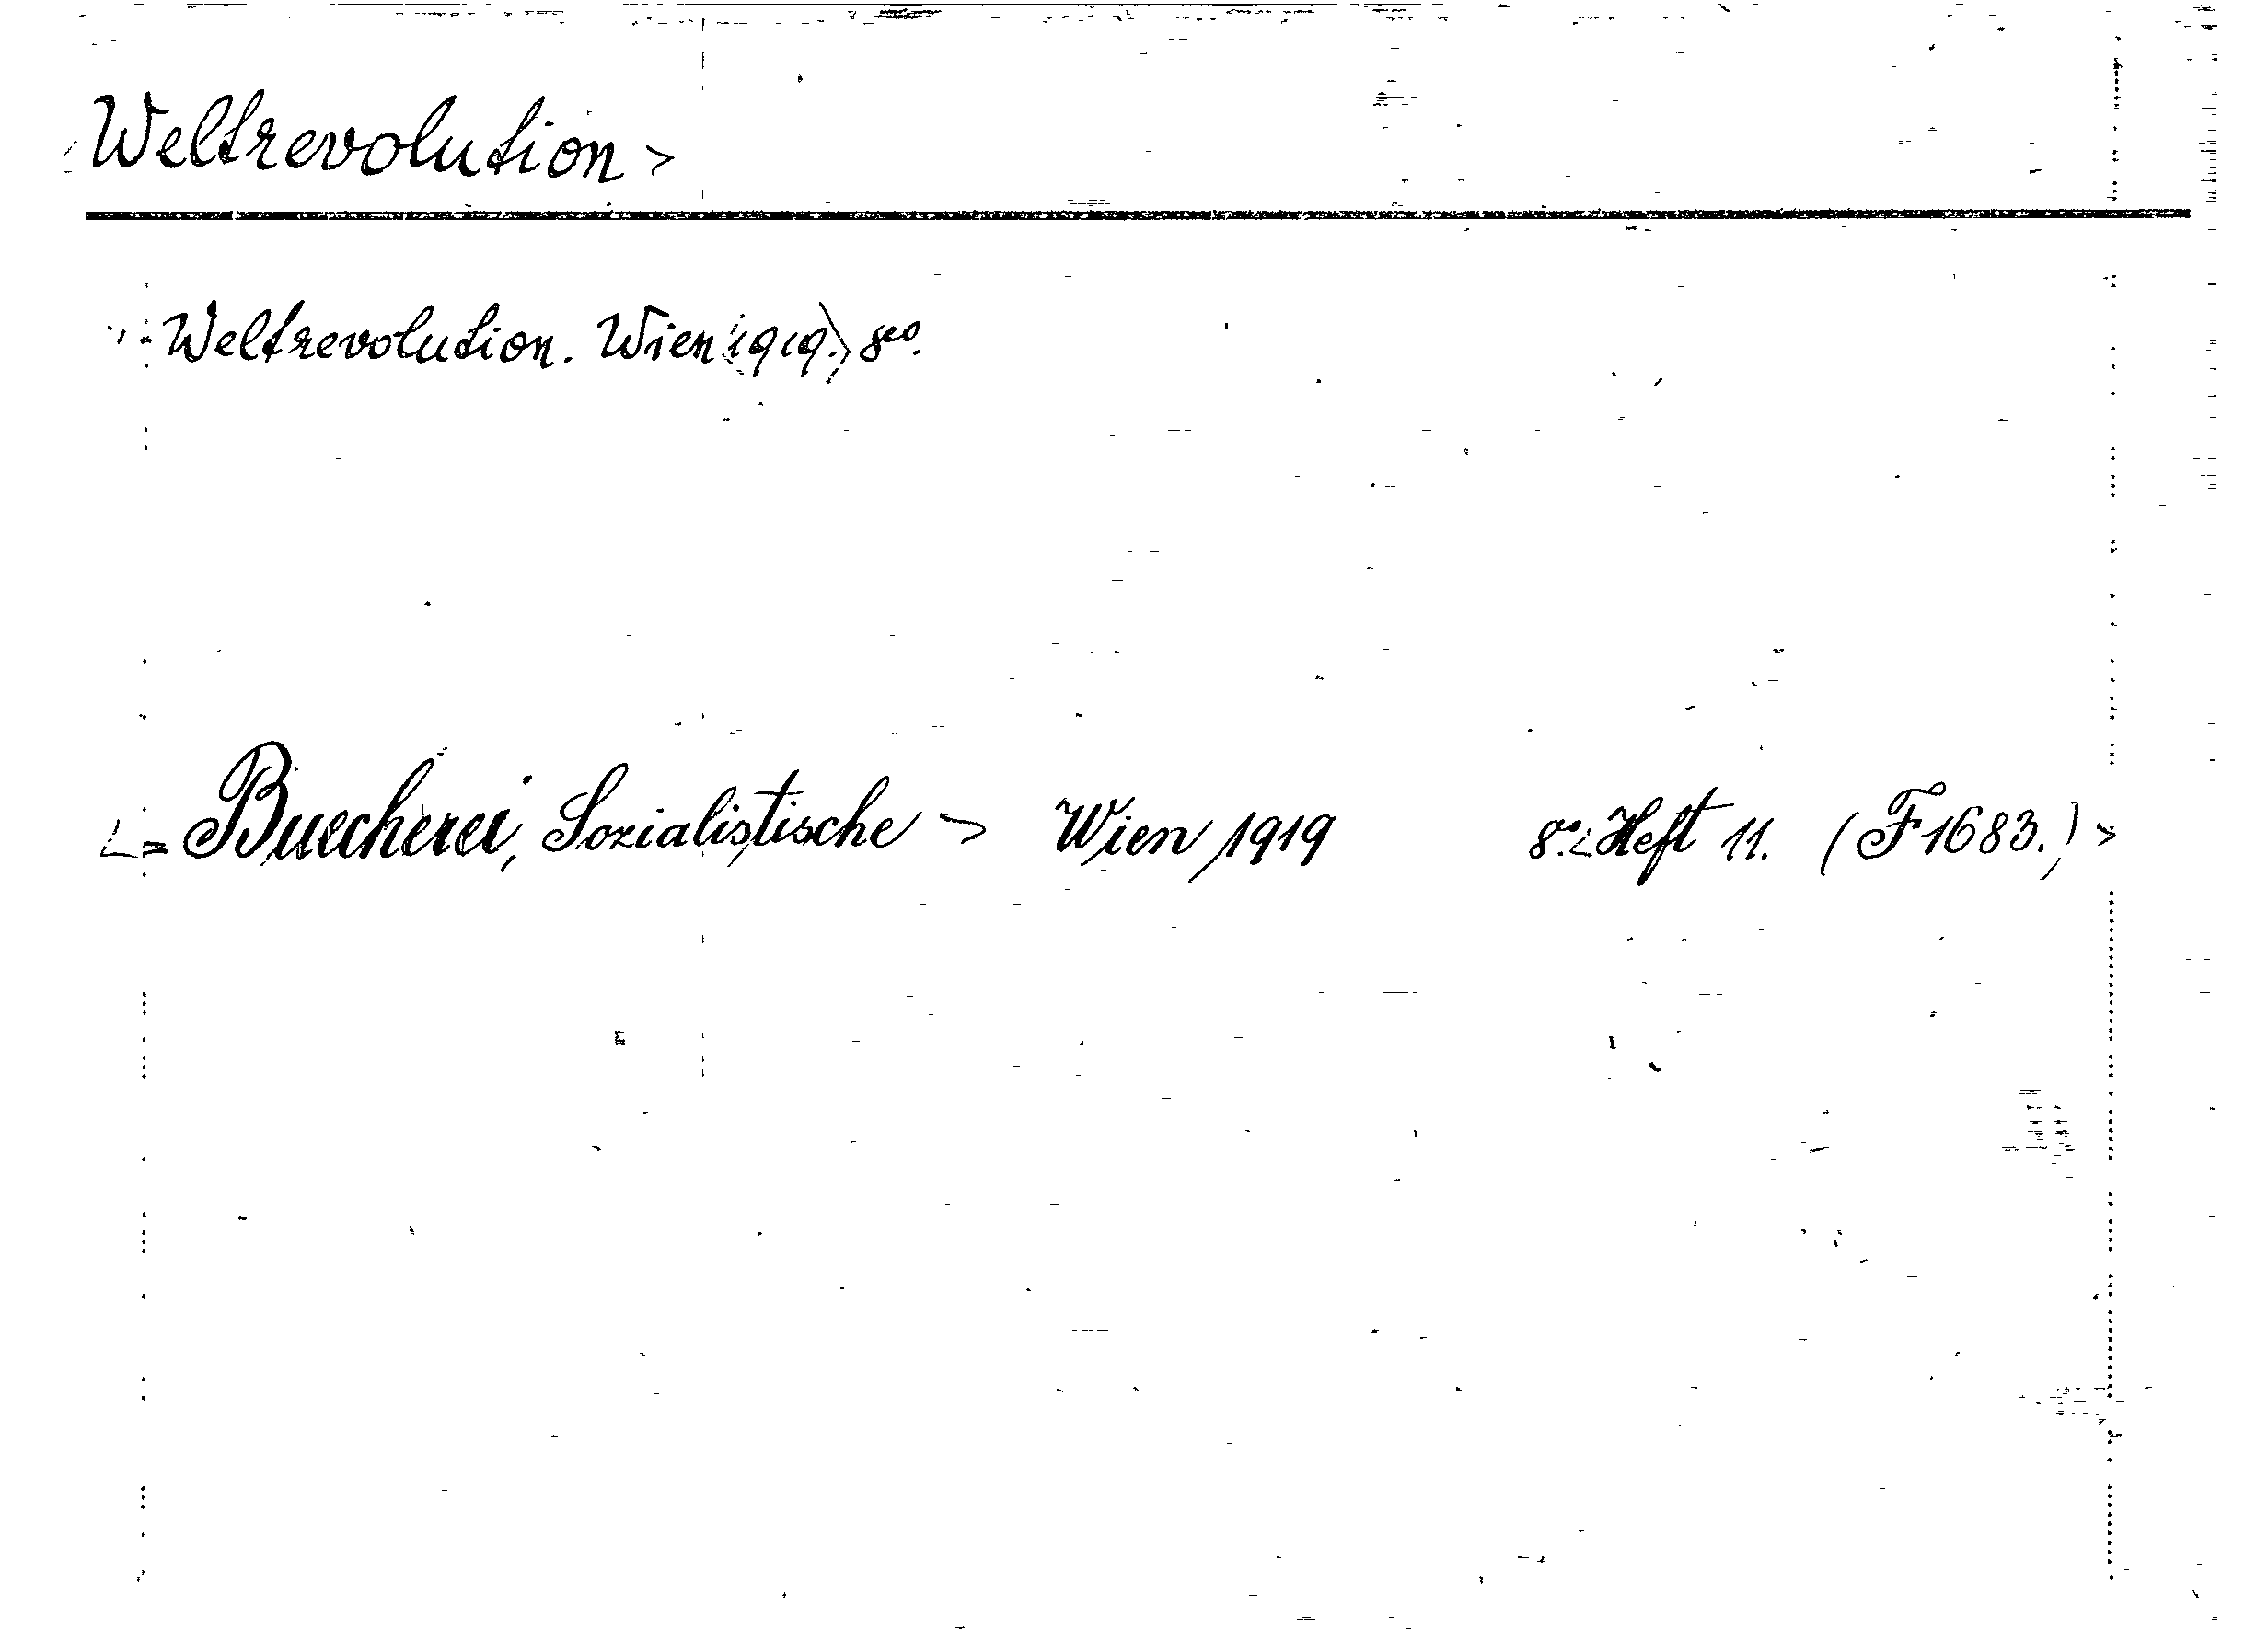 Weltrevolution >
Weltrevolution. Wien (1919.) 8vo.
<= Buecherei, Sozialistische > Wien, 1919 8o. < Heft 11. (F 1683.) >